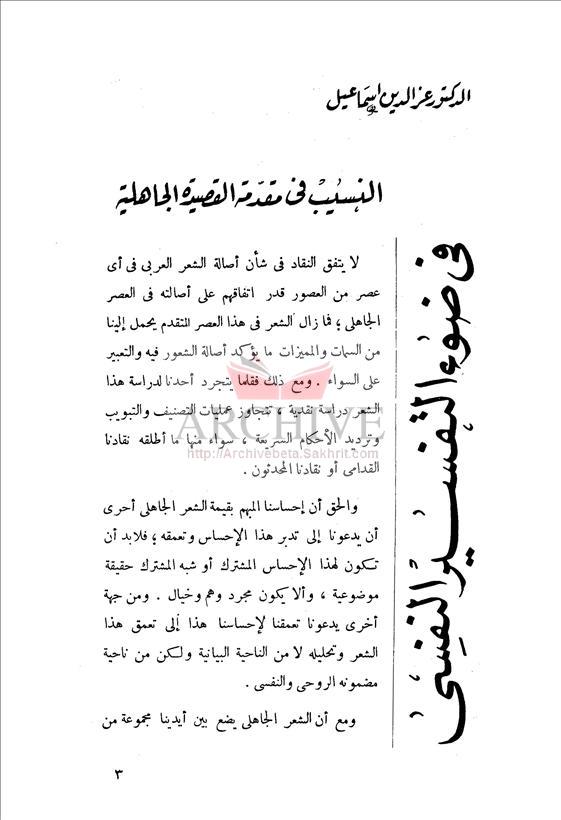 الدكتور عز الدين اسماعيل
النسيب في مقدمة القصيدة الجاهلية
في ضوء التفسير النفسي
لا يتفق النقاد فى شأن أصالة الشعر العربى فى أى
عصر من العصور قدر اتفاقهم على أصالته فى العصر
الجاهلى ؛ فما زال الشعر فى هذا العصر المتقدم يحمل إلينا
من السمات والمميزات ما يؤكد أصالة الشعور فيه والتعبير
على السواء . ومع ذلك فقلما يتجرد أحدنا لدراسة هذا
الشعر دراسة نقدية ، تتجاوز عمليات التصنيف والتبويب
وترديد الأحكام السريعة ، سواء منها ما أطلقه نقادنا
القدامى أو نقادنا المحدثون .
ARCHIVE
http://Archivebeta.Sakhrit.com
والحق أن إحساسنا المبهم بقيمة الشعر الجاهلى أحرى
أن يدعونا إلى تدبر هذا الإحساس وتعمقه ؛ فلابد أن
تكون لهذا الإحساس المشترك أو شبه المشترك حقيقة
موضوعية ، وألا يكون مجرد وهم وخيال . ومن جهة
أخرى يدعونا تعمقنا لإحساسنا هذا إلى تعمق هذا
الشعر وتحليله لا من الناحية البيانية ولكن من ناحية
مضمونه الروحى والنفسى .
ومع أن الشعر الجاهلى يضع بين أيدينا مجموعة من
٣